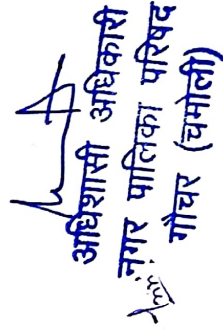 अधिशासी अधिकारी
नगर पालिका परिषद
गौचर (चमोली)